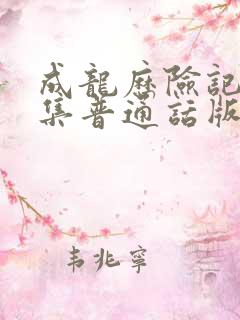 成龍歷險記
集普通話版
韦兆寧